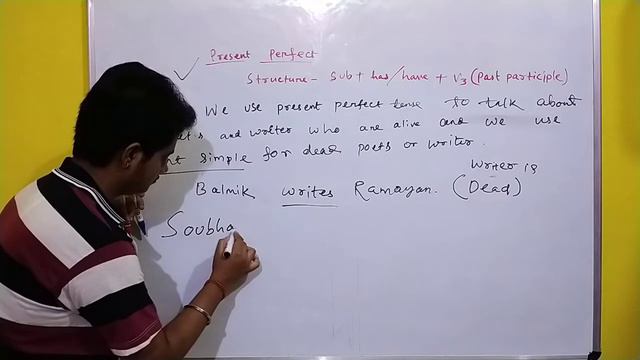 Present Perfect
Structure - Sub + has/have + V3 (Past participle)
We use present perfect tense to talk about
and writer who are alive and we use
simple for dead poets or writer.
Writer is
Balmik writes Ramayan. (Dead)
Soubha